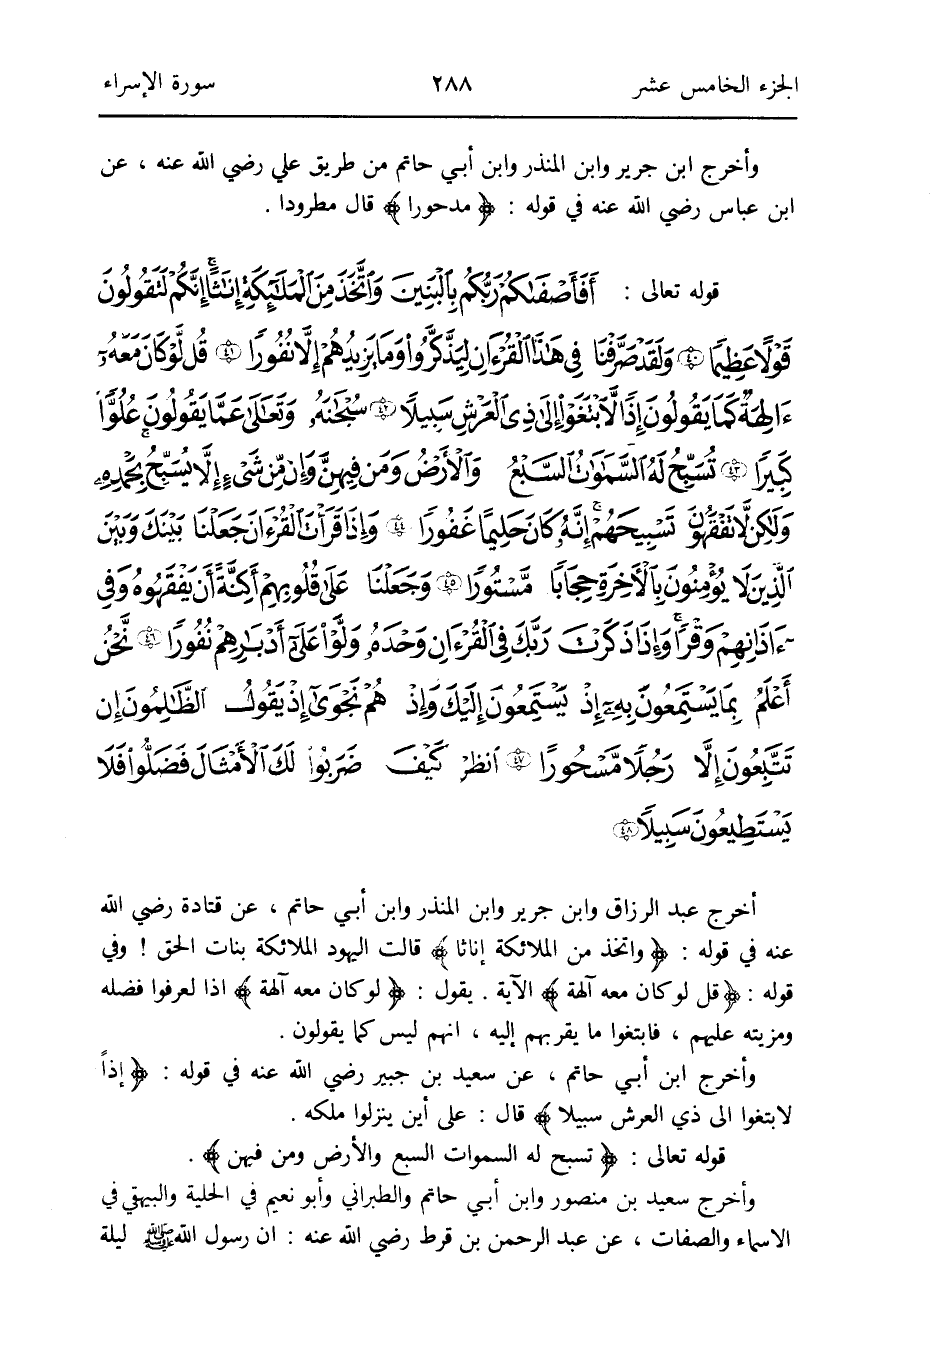 الجزء الخامس عشر ٢٨٨ سورة الإسراء
وأخرج ابن جرير وابن المنذر وابن أبي حاتم من طريق علي رضي الله عنه ، عن
ابن عباس رضي الله عنه في قوله : ﴿ مدحورا ﴾ قال مطرودا .
قوله تعالى : أَفَأَصْفَىٰكُمْ رَبُّكُم بِٱلْبَنِينَ وَٱتَّخَذَ مِنَ ٱلْمَلَٰٓئِكَةِ إِنَٰثًا ۚ إِنَّكُمْ لَتَقُولُونَ
قَوْلًا عَظِيمًا ٤٠ وَلَقَدْ صَرَّفْنَا فِى هَٰذَا ٱلْقُرْءَانِ لِيَذَّكَّرُوا۟ وَمَا يَزِيدُهُمْ إِلَّا نُفُورًا ٤١ قُل لَّوْ كَانَ مَعَهُۥٓ
ءَالِهَةٌ كَمَا يَقُولُونَ إِذًا لَّٱبْتَغَوْا۟ إِلَىٰ ذِى ٱلْعَرْشِ سَبِيلًا ٤٢ سُبْحَٰنَهُۥ وَتَعَٰلَىٰ عَمَّا يَقُولُونَ عُلُوًّا
كَبِيرًا ٤٣ تُسَبِّحُ لَهُ ٱلسَّمَٰوَٰتُ ٱلسَّبْعُ وَٱلْأَرْضُ وَمَن فِيهِنَّ ۚ وَإِن مِّن شَىْءٍ إِلَّا يُسَبِّحُ بِحَمْدِهِۦ
وَلَٰكِن لَّا تَفْقَهُونَ تَسْبِيحَهُمْ ۗ إِنَّهُۥ كَانَ حَلِيمًا غَفُورًا ٤٤ وَإِذَا قَرَأْتَ ٱلْقُرْءَانَ جَعَلْنَا بَيْنَكَ وَبَيْنَ
ٱلَّذِينَ لَا يُؤْمِنُونَ بِٱلْءَاخِرَةِ حِجَابًا مَّسْتُورًا ٤٥ وَجَعَلْنَا عَلَىٰ قُلُوبِهِمْ أَكِنَّةً أَن يَفْقَهُوهُ وَفِىٓ
ءَاذَانِهِمْ وَقْرًا ۚ وَإِذَا ذَكَرْتَ رَبَّكَ فِى ٱلْقُرْءَانِ وَحْدَهُۥ وَلَّوْا۟ عَلَىٰٓ أَدْبَٰرِهِمْ نُفُورًا ٤٦ نَّحْنُ
أَعْلَمُ بِمَا يَسْتَمِعُونَ بِهِۦٓ إِذْ يَسْتَمِعُونَ إِلَيْكَ وَإِذْ هُمْ نَجْوَىٰٓ إِذْ يَقُولُ ٱلظَّٰلِمُونَ إِن
تَتَّبِعُونَ إِلَّا رَجُلًا مَّسْحُورًا ٤٧ ٱنظُرْ كَيْفَ ضَرَبُوا۟ لَكَ ٱلْأَمْثَالَ فَضَلُّوا۟ فَلَا
يَسْتَطِيعُونَ سَبِيلًا ٤٨
أخرج عبد الرزاق وابن جرير وابن المنذر وابن أبي حاتم ، عن قتادة رضي الله
عنه في قوله : ﴿ واتخذ من الملائكة إناثا ﴾ قالت اليهود الملائكة بنات الحق ! وفي
قوله : ﴿ قل لو كان معه آلهة ﴾ الآية . يقول : ﴿ لو كان معه آلهة ﴾ اذا لعرفوا فضله
ومزيته عليهم ، فابتغوا ما يقربهم إليه ، انهم ليس كما يقولون .
وأخرج ابن أبي حاتم ، عن سعيد بن جبير رضي الله عنه في قوله : ﴿ إذاً
لابتغوا الى ذي العرش سبيلا ﴾ قال : على أين ينزلوا ملكه .
قوله تعالى : ﴿ تسبح له السموات السبع والأرض ومن فيهن ﴾ .
وأخرج سعيد بن منصور وابن أبي حاتم والطبراني وأبو نعيم في الحلية والبيهقي في
الاسماء والصفات ، عن عبد الرحمن بن قرط رضي الله عنه : ان رسول الله ﷺ ليلة